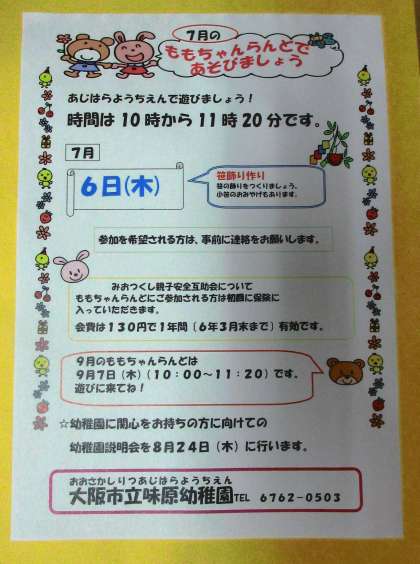 7月の
ももちゃんらんどで
あそびましょう
あじはらようちえんで遊びましょう！
時間は10時から11時20分です。
7月
6日(木)
笹飾り作り
笹の飾りをつくりましょう。
小笹のおみやげもあります。
参加を希望される方は、事前に連絡をお願いします。
みおつくし親子安全互助会について
ももちゃんらんどにご参加される方は初回に保険に
入っていただきます。
会費は130円で1年間（6年3月末まで）有効です。
9月のももちゃんらんどは
9月7日（木）（10：00～11：20）です。
遊びに来てね！
☆幼稚園に関心をお持ちの方に向けての
幼稚園説明会を8月24日（木）に行います。
おおさかしりつあじはらようちえん
大阪市立味原幼稚園TEL 6762-0503